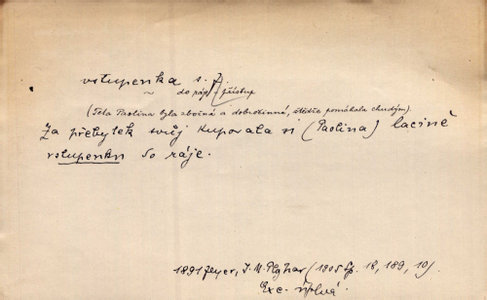 vstupenka s. f.
~ do ráje přístup
(Teta Paolina byla zbožná a dobročinná, štědře pomáhala chudým).
Za přebytek svůj kupovala si (Paolina) lacině
vstupenku do ráje.
1891 Zeyer, J. M. Plojhar (1905 Sp. 18, 189, 10).
Exc.